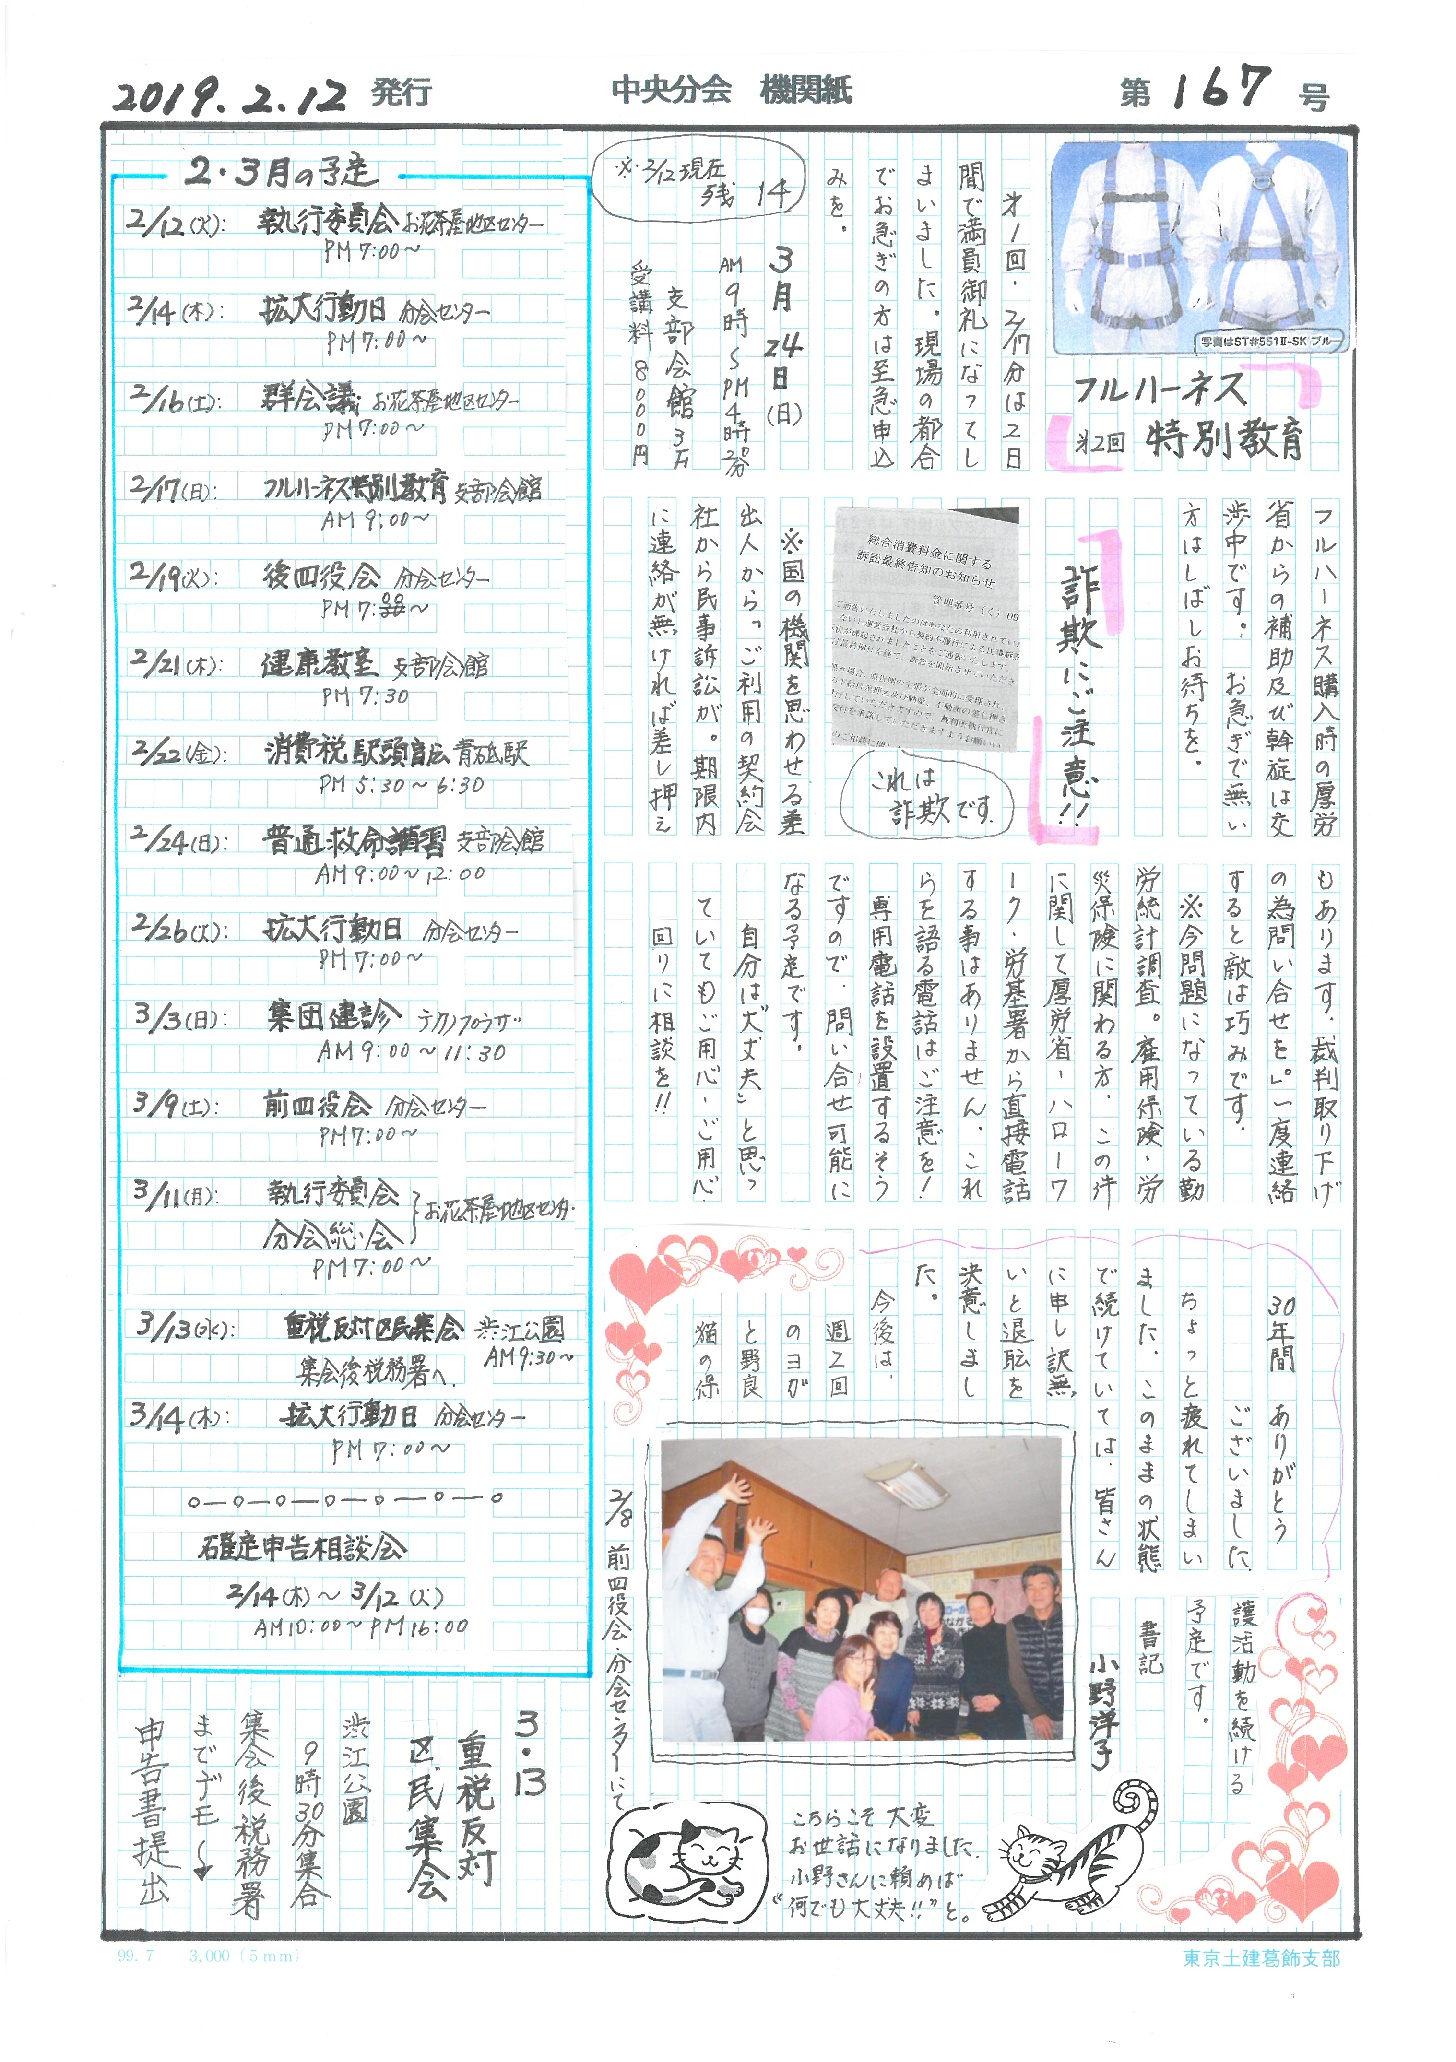 2019.2.12 発行
中央分会 機関紙
第 167 号
写真はST#551Ⅱ-SK ブルー
フルハーネス
第2回 特別教育
オ1回・2/17分は2日
間で満員御礼になってし
まいました。現場の都合
でお急ぎの方は至急申込
みを。
※・2/12現在
残 14
3月24日(日)
AM9時〜PM4時20分
支部会館3F
受講料8000円
フルハーネス購入時の厚労
省からの補助及び幹旋は交
渉中です。お急ぎで無い
方はしばしお待ちを。
詐欺にご注意!!
総合消費料金に関する
訴訟最終告知のお知らせ
これは
詐欺です.
※国の機関を思わせる差
出人から「ご利用の契約会
社から民事訴訟が。期限内
に連絡が無ければ差し押え
もあります。裁判取り下げ
の為問い合せを」。一度連絡
すると敵は巧みです。
※今問題になっている勤
労統計調査。雇用保険・労
災保険に関わる方、この件
に関して厚労省、ハローワ
ーク、労基署から直接電話
する事はありません。これ
らを語る電話はご注意を!
専用電話を設置するそう
ですので、問い合せ可能に
なる予定です。
自分は“大丈夫”と思っ
ていてもご用心、ご用心
回りに相談を!!
30年間 ありがとう
ございました
ちょっと疲れてしまい
ました。このままの状態
で続けていては、皆さん
に申し訳無
いと退転を
決意しまし
た。
今後は、
週2回
のヨガ
と野良
猫の保
護活動を続ける
予定です。
書記
小野洋子
2/8 前四役会・分会センターにて
こちらこそ 大変
お世話になりました.
小野さんに頼めば
“何でも大丈夫!!”と。
2・3月の予定
2/12(火): 執行委員会 お花茶屋地区センター
PM7:00〜
2/14(木): 拡大行動日 分会センター
PM7:00〜
2/16(土): 群会議 お花茶屋地区センター
PM7:00〜
2/17(日): フルハーネス特別教育 支部会館
AM9:00〜
2/19(火): 後四役会 分会センター
PM7:00〜
2/21(木): 健康教室 支部会館
PM7:30
2/22(金): 消費税駅頭宣伝 青砥駅
PM5:30〜6:30
2/24(日): 普通救命講習 支部会館
AM9:00〜12:00
2/26(火): 拡大行動日 分会センター
PM7:00〜
3/3(日): 集団健診 テクノプラザ
AM9:00〜11:30
3/9(土): 前四役会 分会センター
PM7:00〜
3/11(月): 執行委員会
分会総会
お花茶屋地区センター
PM7:00〜
3/13(水): 重税反対区民集会 渋江公園
AM9:30〜
集会後税務署へ.
3/14(木): 拡大行動日 分会センター
PM7:00〜
確定申告相談会
2/14(木)〜3/12(火)
AM10:00〜PM16:00
3・13
重税反対
区民集会
渋江公園
9時30分集合
集会後税務署
までデモ〜
申告書提出
99.7 3,000(5mm)
東京土建葛飾支部